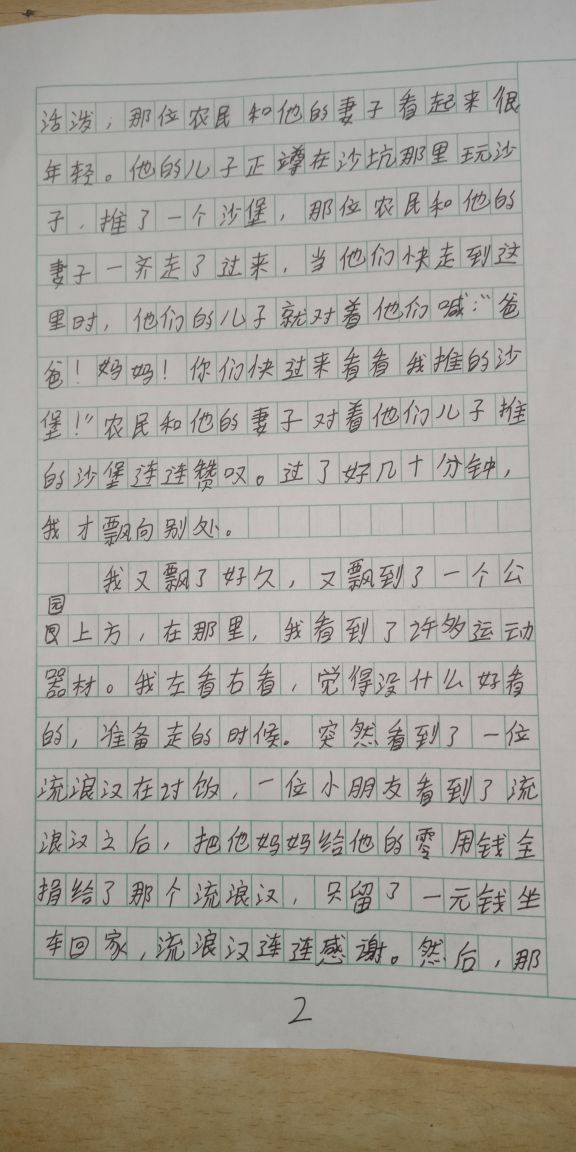 活泼，那位农民和他的妻子看起来很
年轻。他的儿子正蹲在沙坑那里玩沙
子，推了一个沙堡，那位农民和他的
妻子一齐走了过来，当他们快走到这
里时，他们的儿子就对着他们喊：“爸
爸！妈妈！你们快过来看看我推的沙
堡！”农民和他的妻子对着他们儿子推
的沙堡连连赞叹。过了好几十分钟，
我才飘向别处。
我又飘了好久，又飘到了一个公
园上方，在那里，我看到了许多运动
器材。我左看右看，觉得没什么好看
的，准备走的时候。突然看到了一位
流浪汉在讨饭，一位小朋友看到了流
浪汉之后，把他妈妈给他的零用钱全
捐给了那个流浪汉，只留了一元钱坐
车回家，流浪汉连连感谢。然后，那
2